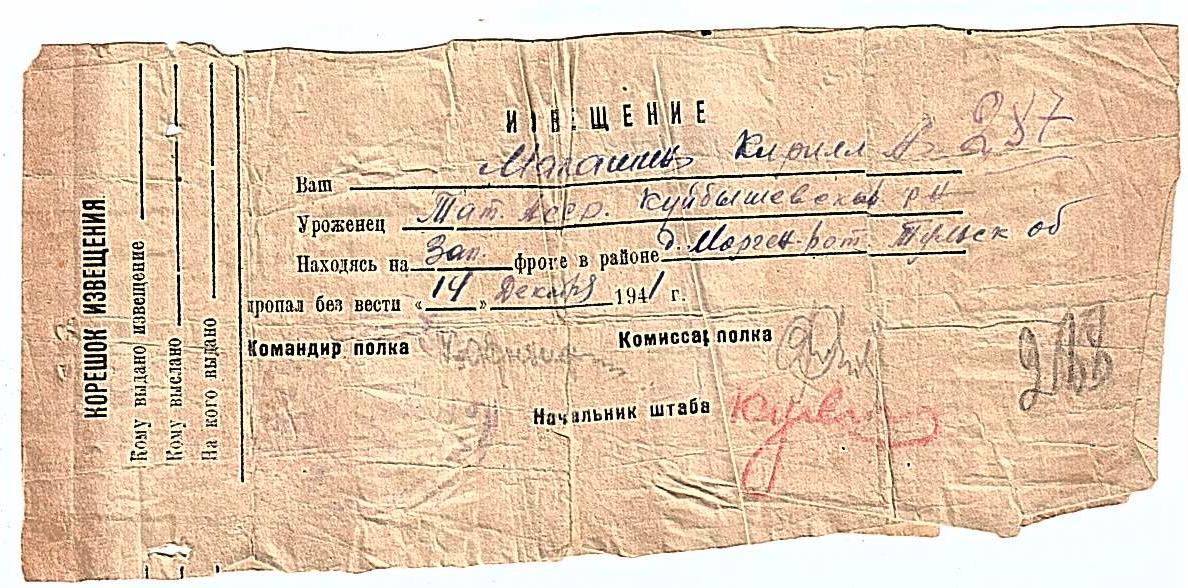 КОРЕШОК ИЗВЕЩЕНИЯ.
Кому выдано извещение
Кому выслано
На кого выдано
ИЗВЕЩЕНИЕ
257
Ваш Малашин Кирилл А.
Уроженец Тат. Асср. Куйбышевский р-н
Находясь на Зап. фроне в районе д. Морген-рот Тульск об
пропал без вести « 14 » Декабря 1941 г.
Командир полка
Комиссар полка
Начальник штаба